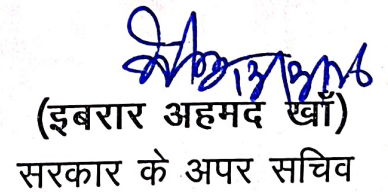 (इबरार अहमद खाँ)
सरकार के अपर सचिव